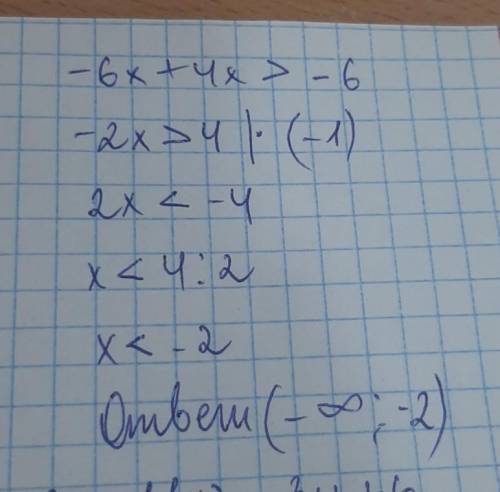 -6x+4x > -6
-2x>4 |· (-1)
2x < -4
x < 4:2
x < -2
Ответ (-∞; -2)